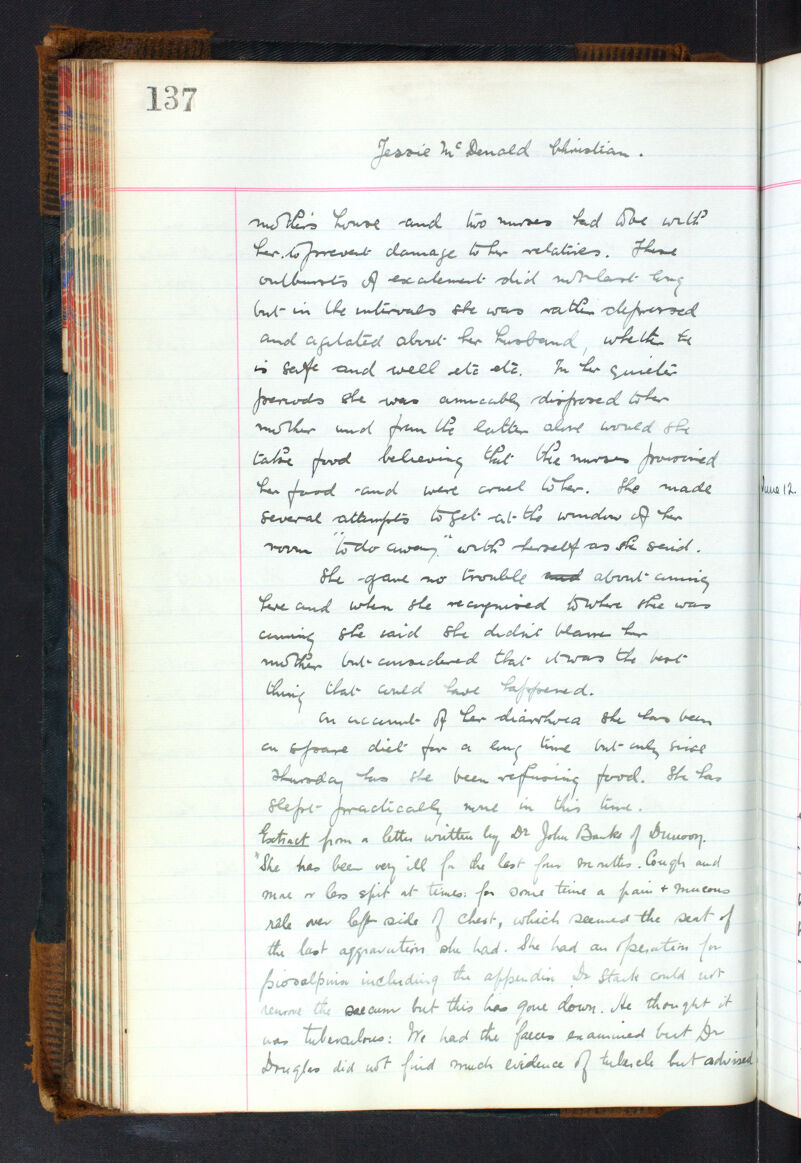 137
Jessie Mc Donald Christian.
mother's house and two nurses had to be with
her to prevent damage to her relatives. These
outbursts of excitement did not last long
but in the intervals she was rather depressed
and agitated about her husband, whether he
is safe and well etc etc. In her quieter
periods she was amicably disposed to her
mother and from the latter alone would she
take food believing that the nurses poisoned
her food and were cruel to her. She made
several attempts to get at the window of her
room "to do away" with herself as she said.
She gave no trouble about coming
here and when she recognised to where she was
coming she said she didn't blame her
mother but considered that it was the best
thing that could have happened.
On account of her diarrhoea she has been
on spare diet for a long time but only since
Thursday has she been refusing food. She has
slept practically none in this time.
Extract from a letter written by Dr John Banks of Dunoon.
"She has been very ill for the last four months. Cough and
more or less spit at times: for some time a pain + mucous
rale over left side of chest, which seemed the seat of
the last aggravation she had. She had an operation for
piosalpinx including the appendix Dr Stark could not
remove the caecum but this has gone down. He thought it
was tuberculous: We had the faeces examined but Dr
Douglas did not find much evidence of tubercle but advised
June 12.